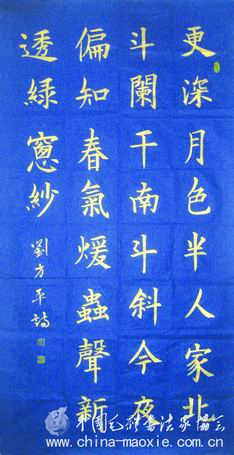 更深月色半人家北
斗闌干南斗斜今夜
偏知春氣煖蟲聲新
透緑窻紗
劉方平詩
中国毛体书法家协会
www.china-maoxie.com.cn